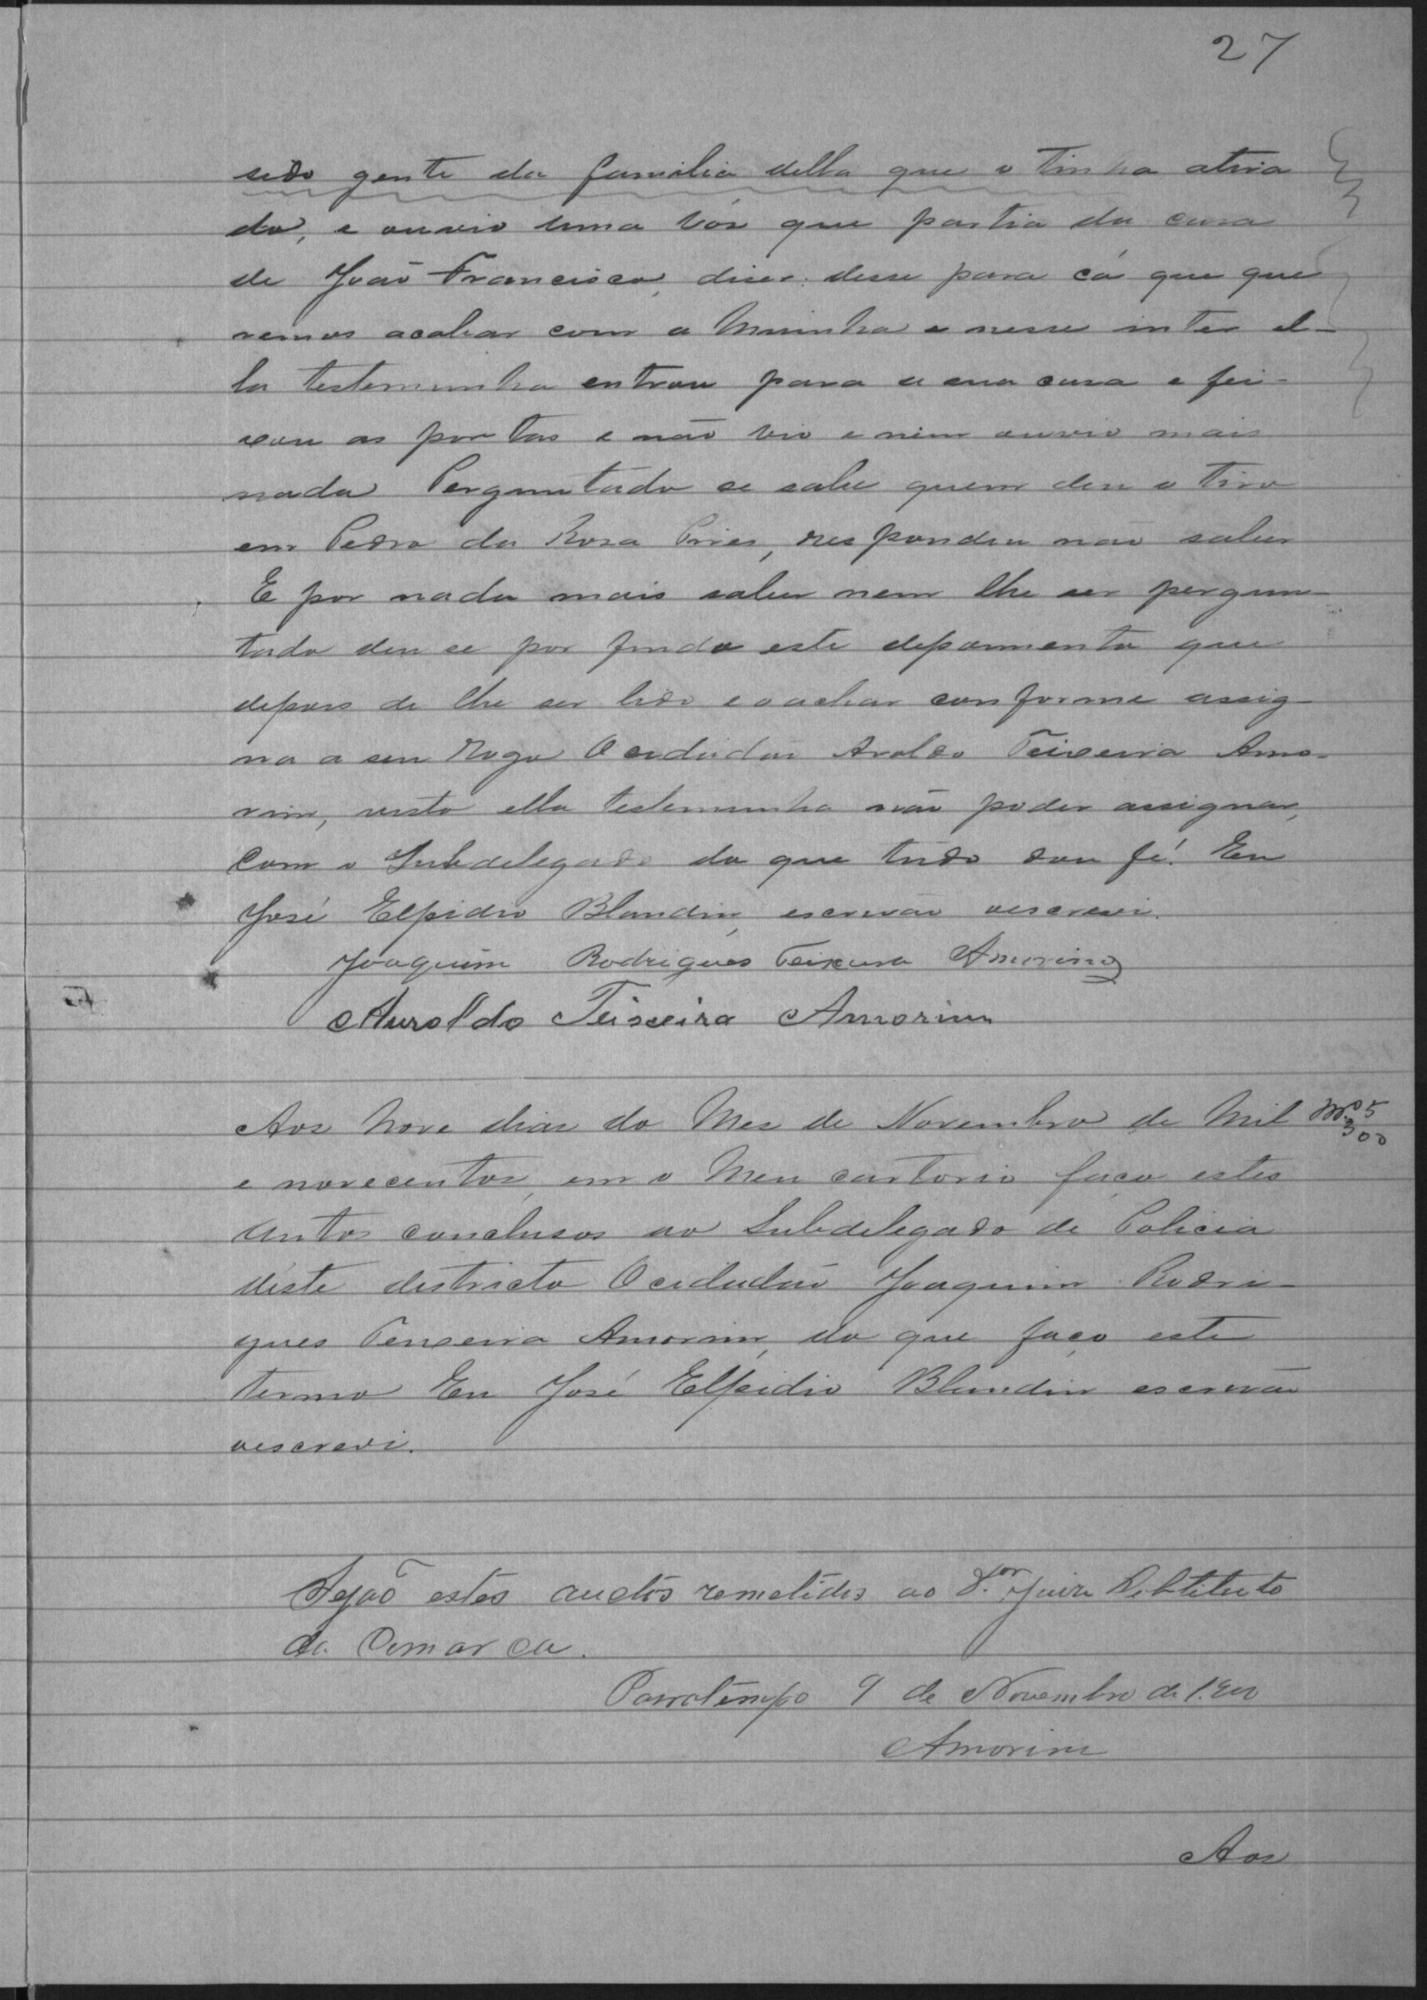 27
sido gente da familia della que o tinha atira
do, e ouvio uma vós que partia da casa
de João Francisco, diser: desse para cá que que
remos acabar com a Mininha e nesse inter el-
la testemunha entrou para a sua casa e fei-
xou as portas e não vio e nem ouvio mais
nada Perguntado se sabe quem deu o tiro
em Pedro da Rosa Pires, respondeu não saber
E por nada mais saber nem lhe ser pergun-
tado deu se por findo este depoimento que
depois de lhe ser lido e o achar conforme assig-
na a seu rogo O cidadão Aroldo Teixeira Amo-
rim, visto ella testemunha não poder assignar,
com o Subdelegado do que tudo dou fé. Eu
José Elpidio Blandin, escrivão oescrevi.
Joaquim Rodrigues Teixeira Amorim
Auroldo Teixeira Amorim
Aos Nove dias do Mes de Novembro de Mil
5
300
e novecentos, em o Meu cartorio faço estes
autos conclusos ao Subdelegado de Policia
deste districto O cidadão Joaquim Rodri-
gues Teixeira Amorim, do que faço este
termo Eu José Elpidio Blandin escrivão
oescrevi.
Sejão estes auctos remetidos ao Dor Juiz Substituto
da Comarca.
Passatempo 9 de Novembro de 1.900
Amorim
Aos